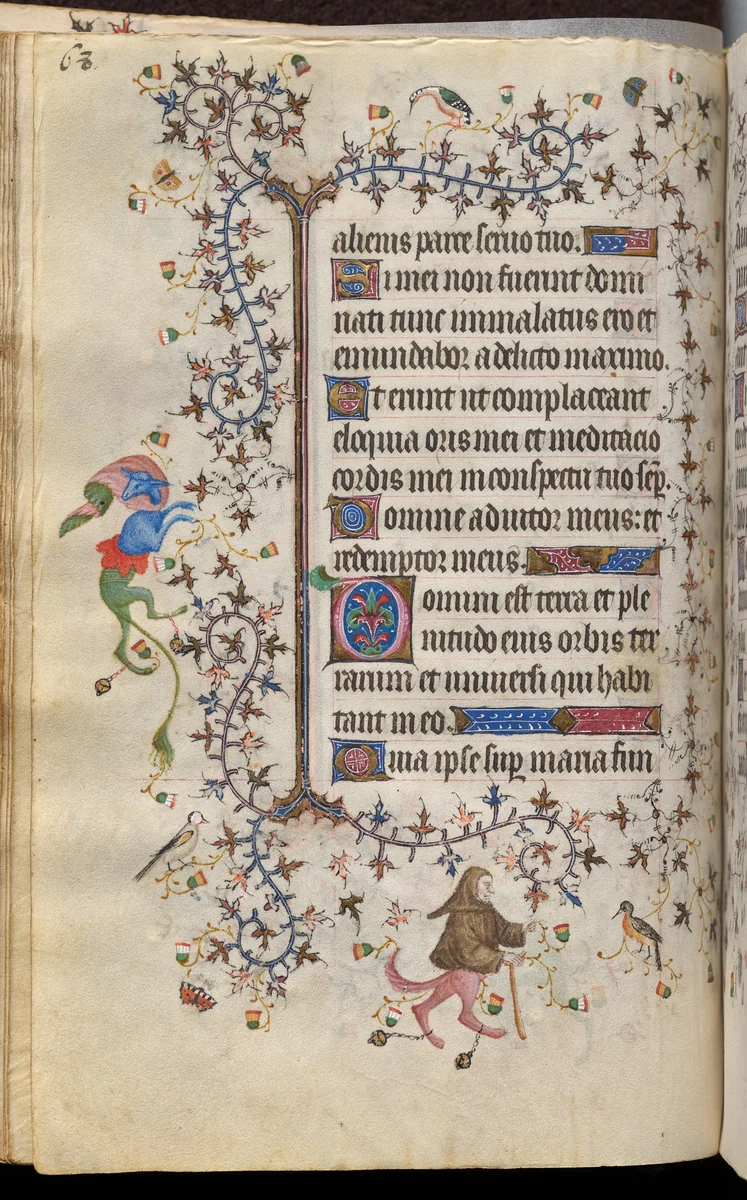 63.
alienis parce seruo tuo.
Si mei non fuerint domi
nati tunc inmalatus ero et
emundabor a delicto maximo.
Et erunt ut complaceant
eloquia oris mei et meditacio
cordis mei in conspectu tuo sep̄.
Domine adiutor meus: et
redemptor meus.
Domini est terra et ple
nitudo eius orbis ter
rarum et uniuersi qui habi
tant in eo.
Quia ipse sup maria fun